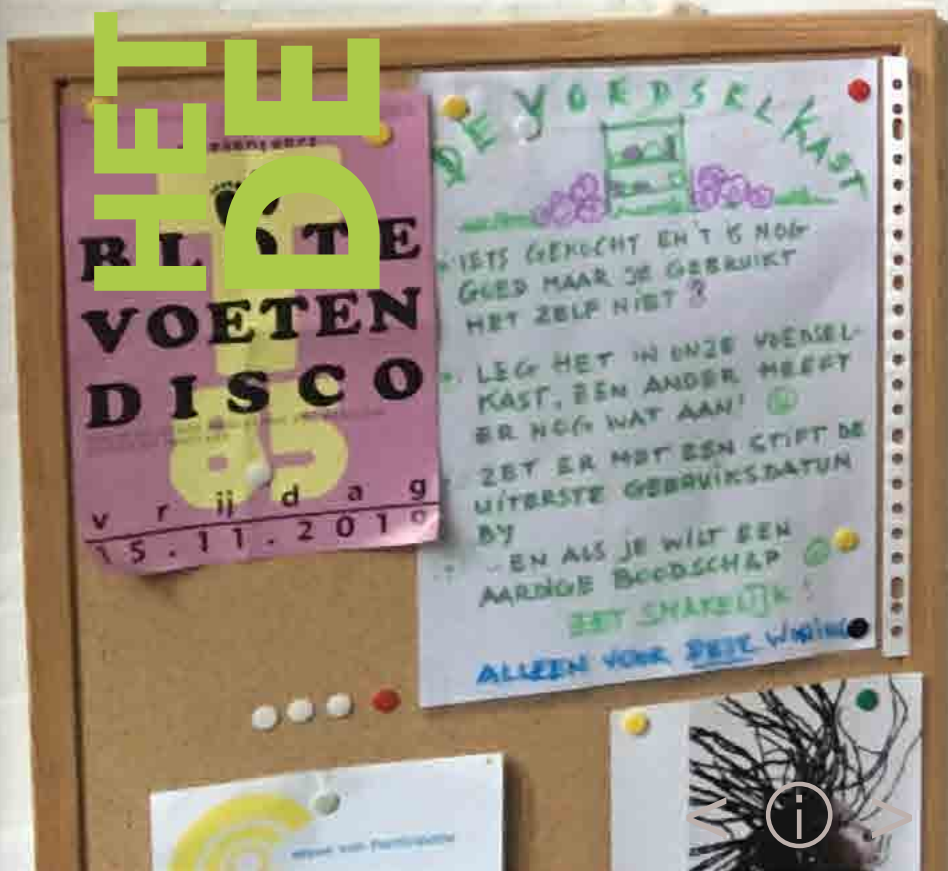 HET
DE
BLOTE
VOETEN
DISCO
85
vrijdag
15.11.2019
DE VOEDSELKAST
IETS GEKOCHT EN 'T IS NOG
GOED MAAR JE GEBRUIKT
HET ZELF NIET?
LEG HET IN ONZE VOEDSEL-
KAST, EEN ANDER HEEFT
ER NOG WAT AAN!
ZET ER MET EEN STIFT DE
UITERSTE GEBRUIKSDATUM
BY
..EN ALS JE WILT EEN
AARDIGE BOODSCHAP
EET SMAKELIJK!
ALLEEN VOOR DEZE WONING
i